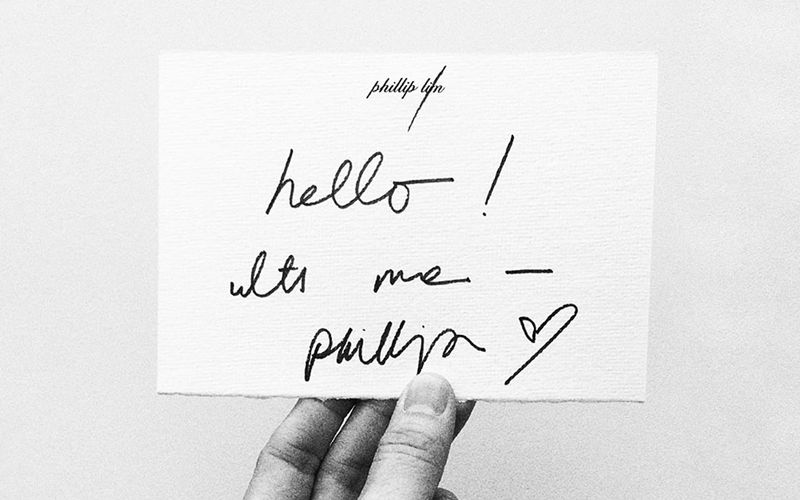 phillip lim
hello !
its me —
phillip ♡